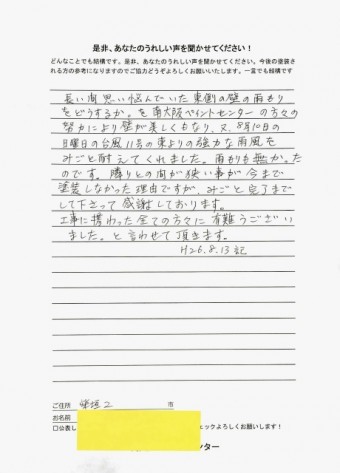 是非、あなたのうれしい声を聞かせてください！
どんなことでも結構です。是非、あなたのうれしい声を聞かせてください。今後の塗装さ
れる方の参考になりますのでご協力どうぞよろしくお願いいたします。一言でも結構です
長い間思い悩んでいた東側の壁の雨もり
をどうするか。を南大阪ペイントセンターの方々の
努力により壁が美しくもなり、又、8月10日の
日曜日の台風11号の東よりの強力な雨風を
みごと耐えてくれました。雨もりも無かった
のです。隣りとの間が狭い事が今まで
塗装しなかった理由ですが、みごと完了まで
して下さって感謝しております。
工事に携わった全ての方々に有難うござい
ました。と言わせて頂きます。
H26.8.13記
ご住所 柴垣2 市
お名前
口公表し ェックよろしくお願いします！
ンター